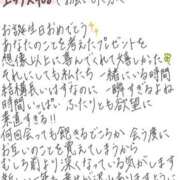 お誕生日おめでとう✨
あなたのことを考えたプレゼントを
想像以上に喜んでくれて嬉しかった
それにしても私たち 一緒にいる時間
結構長いはずなのに 一瞬すぎるよね
時間が いっぱい ふたりとも欲望に
素直すぎる!!
何回会っても飽きるどころか 会う度に
お互いのことを覚えてしまうから
むしろ前より深くなっている気がします